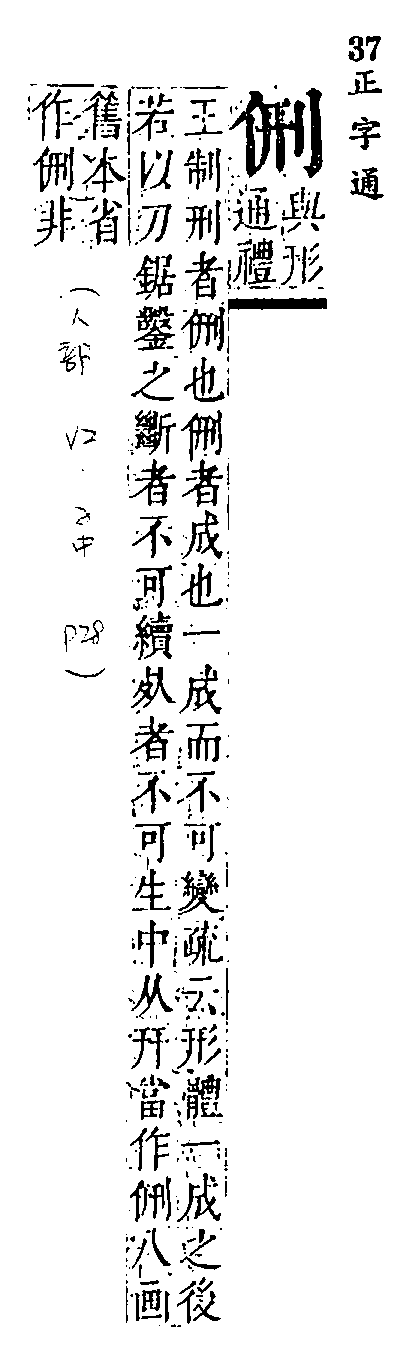 37
正字通
侀
與形
通禮
王制刑者侀也侀者成也一成而不可變疏云形體一成之後
若以刀鋸鑿之斷者不可續死者不可生中从幵當作侀八画
舊本省
作侀非
(人部 V2.子中 P28)